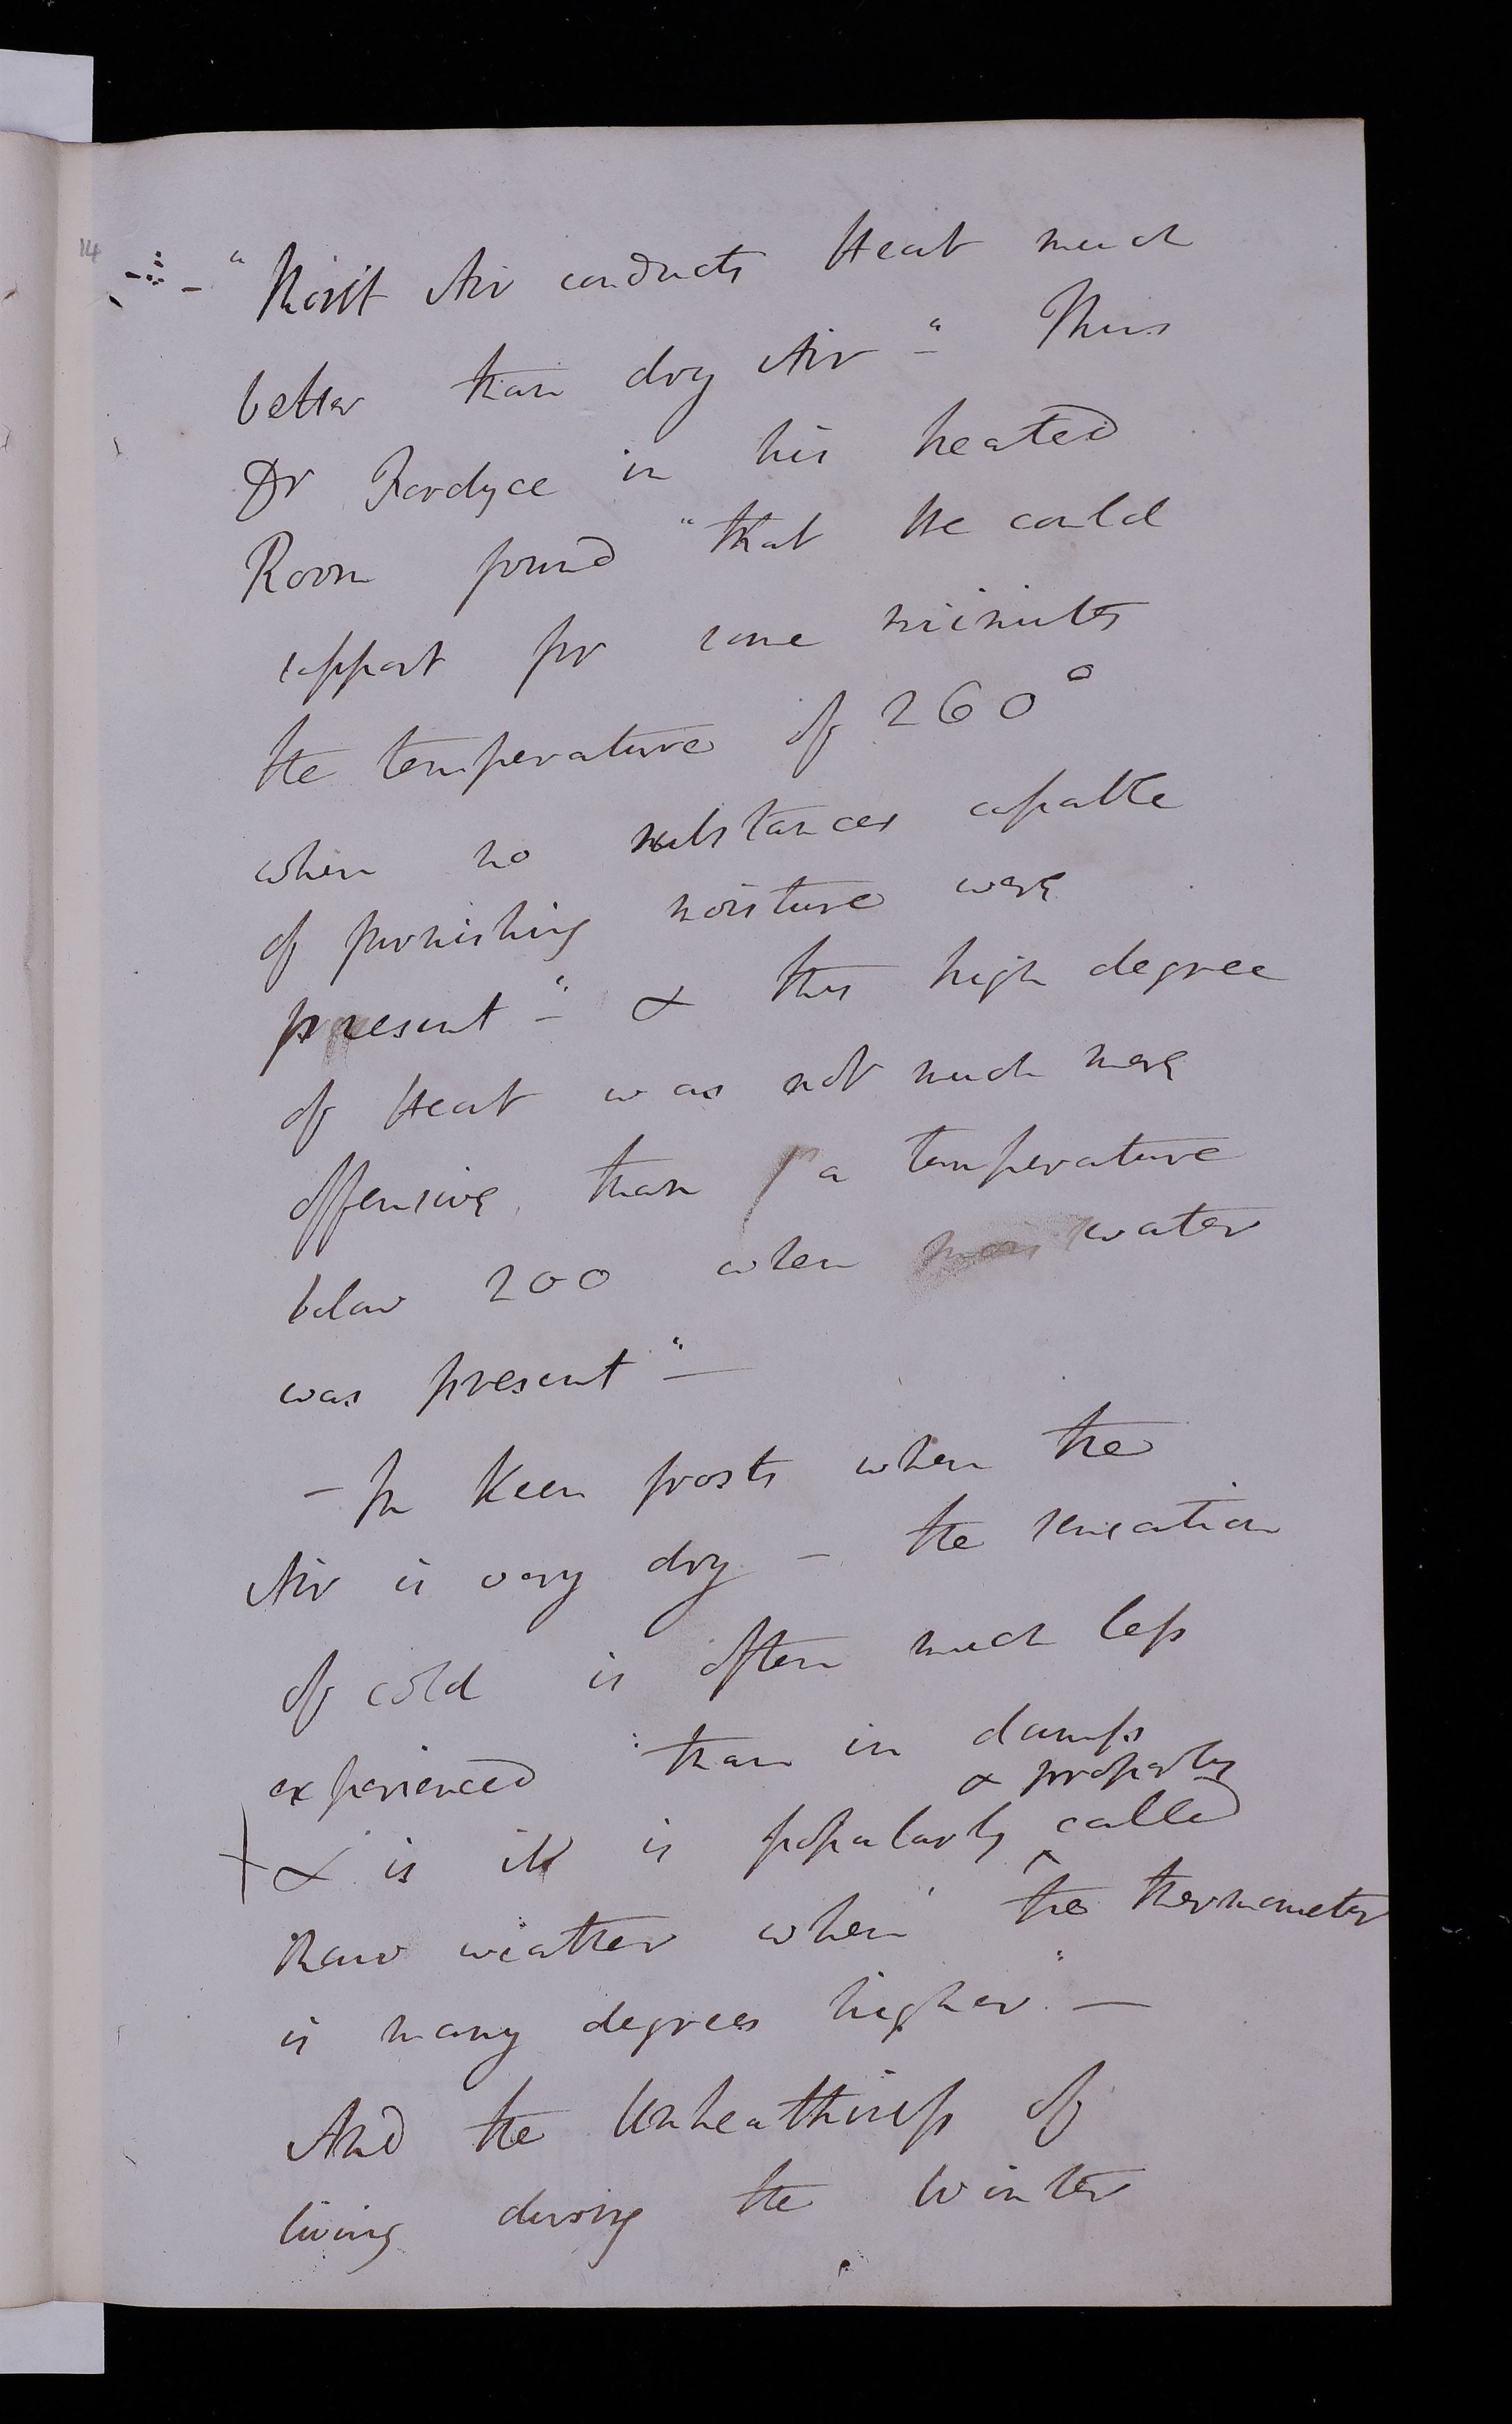 14
"Moist Air conducts Heat much
better than dry Air" - Thus
Dr Fordyce in his heated
Room found "that He could
support for some minutes
the temperature of 260°
when no substances capable
of furnishing moisture were
present" - & this high degree
of Heat was not much more
offensive than a temperature
below 200 when water
was present" -
- In Keen frosts when the
Air is very dry - the sensation
of cold is often much less
experienced than in damp
& properly
& is it is popularly ^ called
Raw weather when the thermometer
is many degrees higher" -
And the Unhealthiness of
living during the Winter